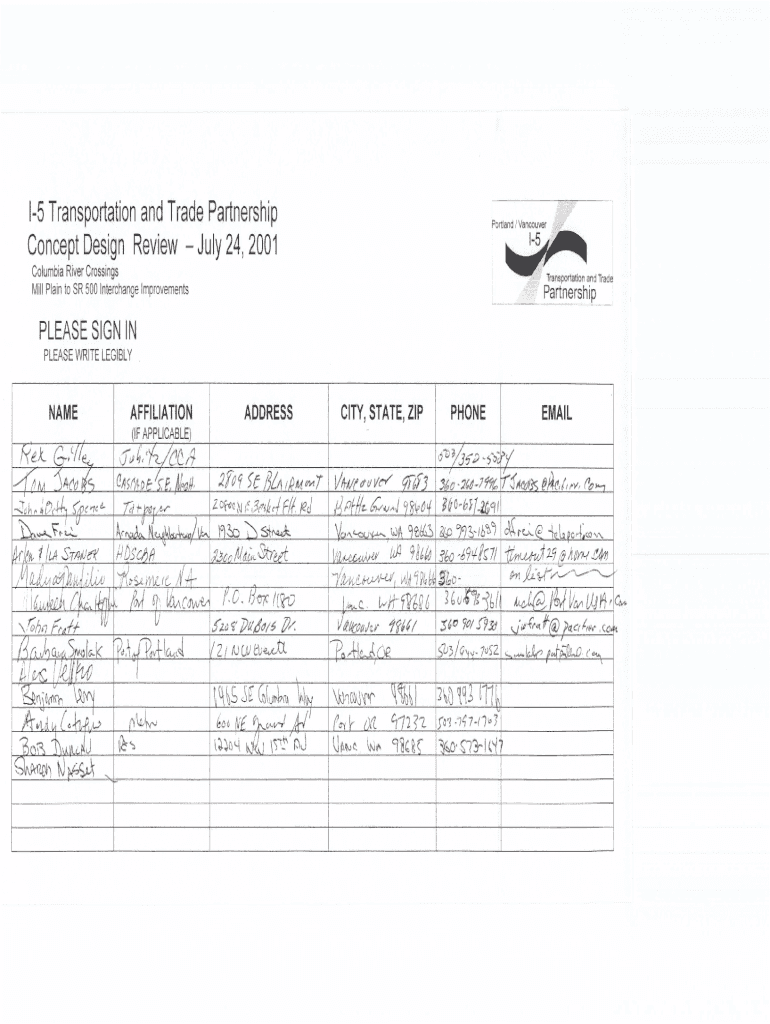 I-5 Transportation and Trade Partnership
Concept Design Review – July 24, 2001
Columbia River Crossings
Mill Plain to SR 500 Interchange Improvements
Portland / Vancouver
I-5
Transportation and Trade
Partnership
PLEASE SIGN IN
PLEASE WRITE LEGIBLY
NAME AFFILIATION (IF APPLICABLE) ADDRESS CITY, STATE, ZIP PHONE EMAIL
Rex Gilley Jubitz/CCA 503/352-
Tom Jacobs CASCADE S.E. 2809 SE BLAIRMONT VANCOUVER 360-260-7996 TJacobs@Pacifier.com
John & Betty Spence Taxpayer Rd Battle Ground 98604 360-687-2691
Dave Frei Arnada 1930 D Street Vancouver, WA 98663 360 993-1689
HDSCBA 2300 Main Street Vancouver WA 98660 360-694-8571
Rosemere NA Vancouver, WA 360-
on list
Port of Vancouver P.O. Box 1180 WA 98686
John Fratt 5208 DuBois Dr. Vancouver 98661 360 901 5930
Barbara Smolak Port of Portland 121 NW Everett Portland, OR
Alex
Benjamin 1965 SE Columbia Way Vancouver 98661 360 993 1776
Andy Cotugno Metro 600 NE Grand Av Port OR 97232 503-797-1763
Bob Duncan Res 12204 NW 15th AV Vanc WA 98685 360-573-1647
Sharon Nasset